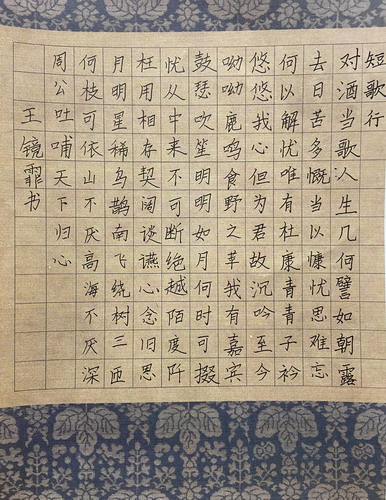 短歌行
对酒当歌人生几何譬如朝露
去日苦多慨当以慷忧思难忘
何以解忧唯有杜康青青子衿
悠悠我心但为君故沉吟至今
呦呦鹿鸣食野之草我有嘉宾
鼓瑟吹笙明明如月何时可掇
忧从中来不可断绝越陌度阡
枉用相存契阔谈讌心念旧恩
月明星稀乌鹊南飞绕树三匝
何枝可依山不厌高海不厌深
周公吐哺天下归心
王镜霏书